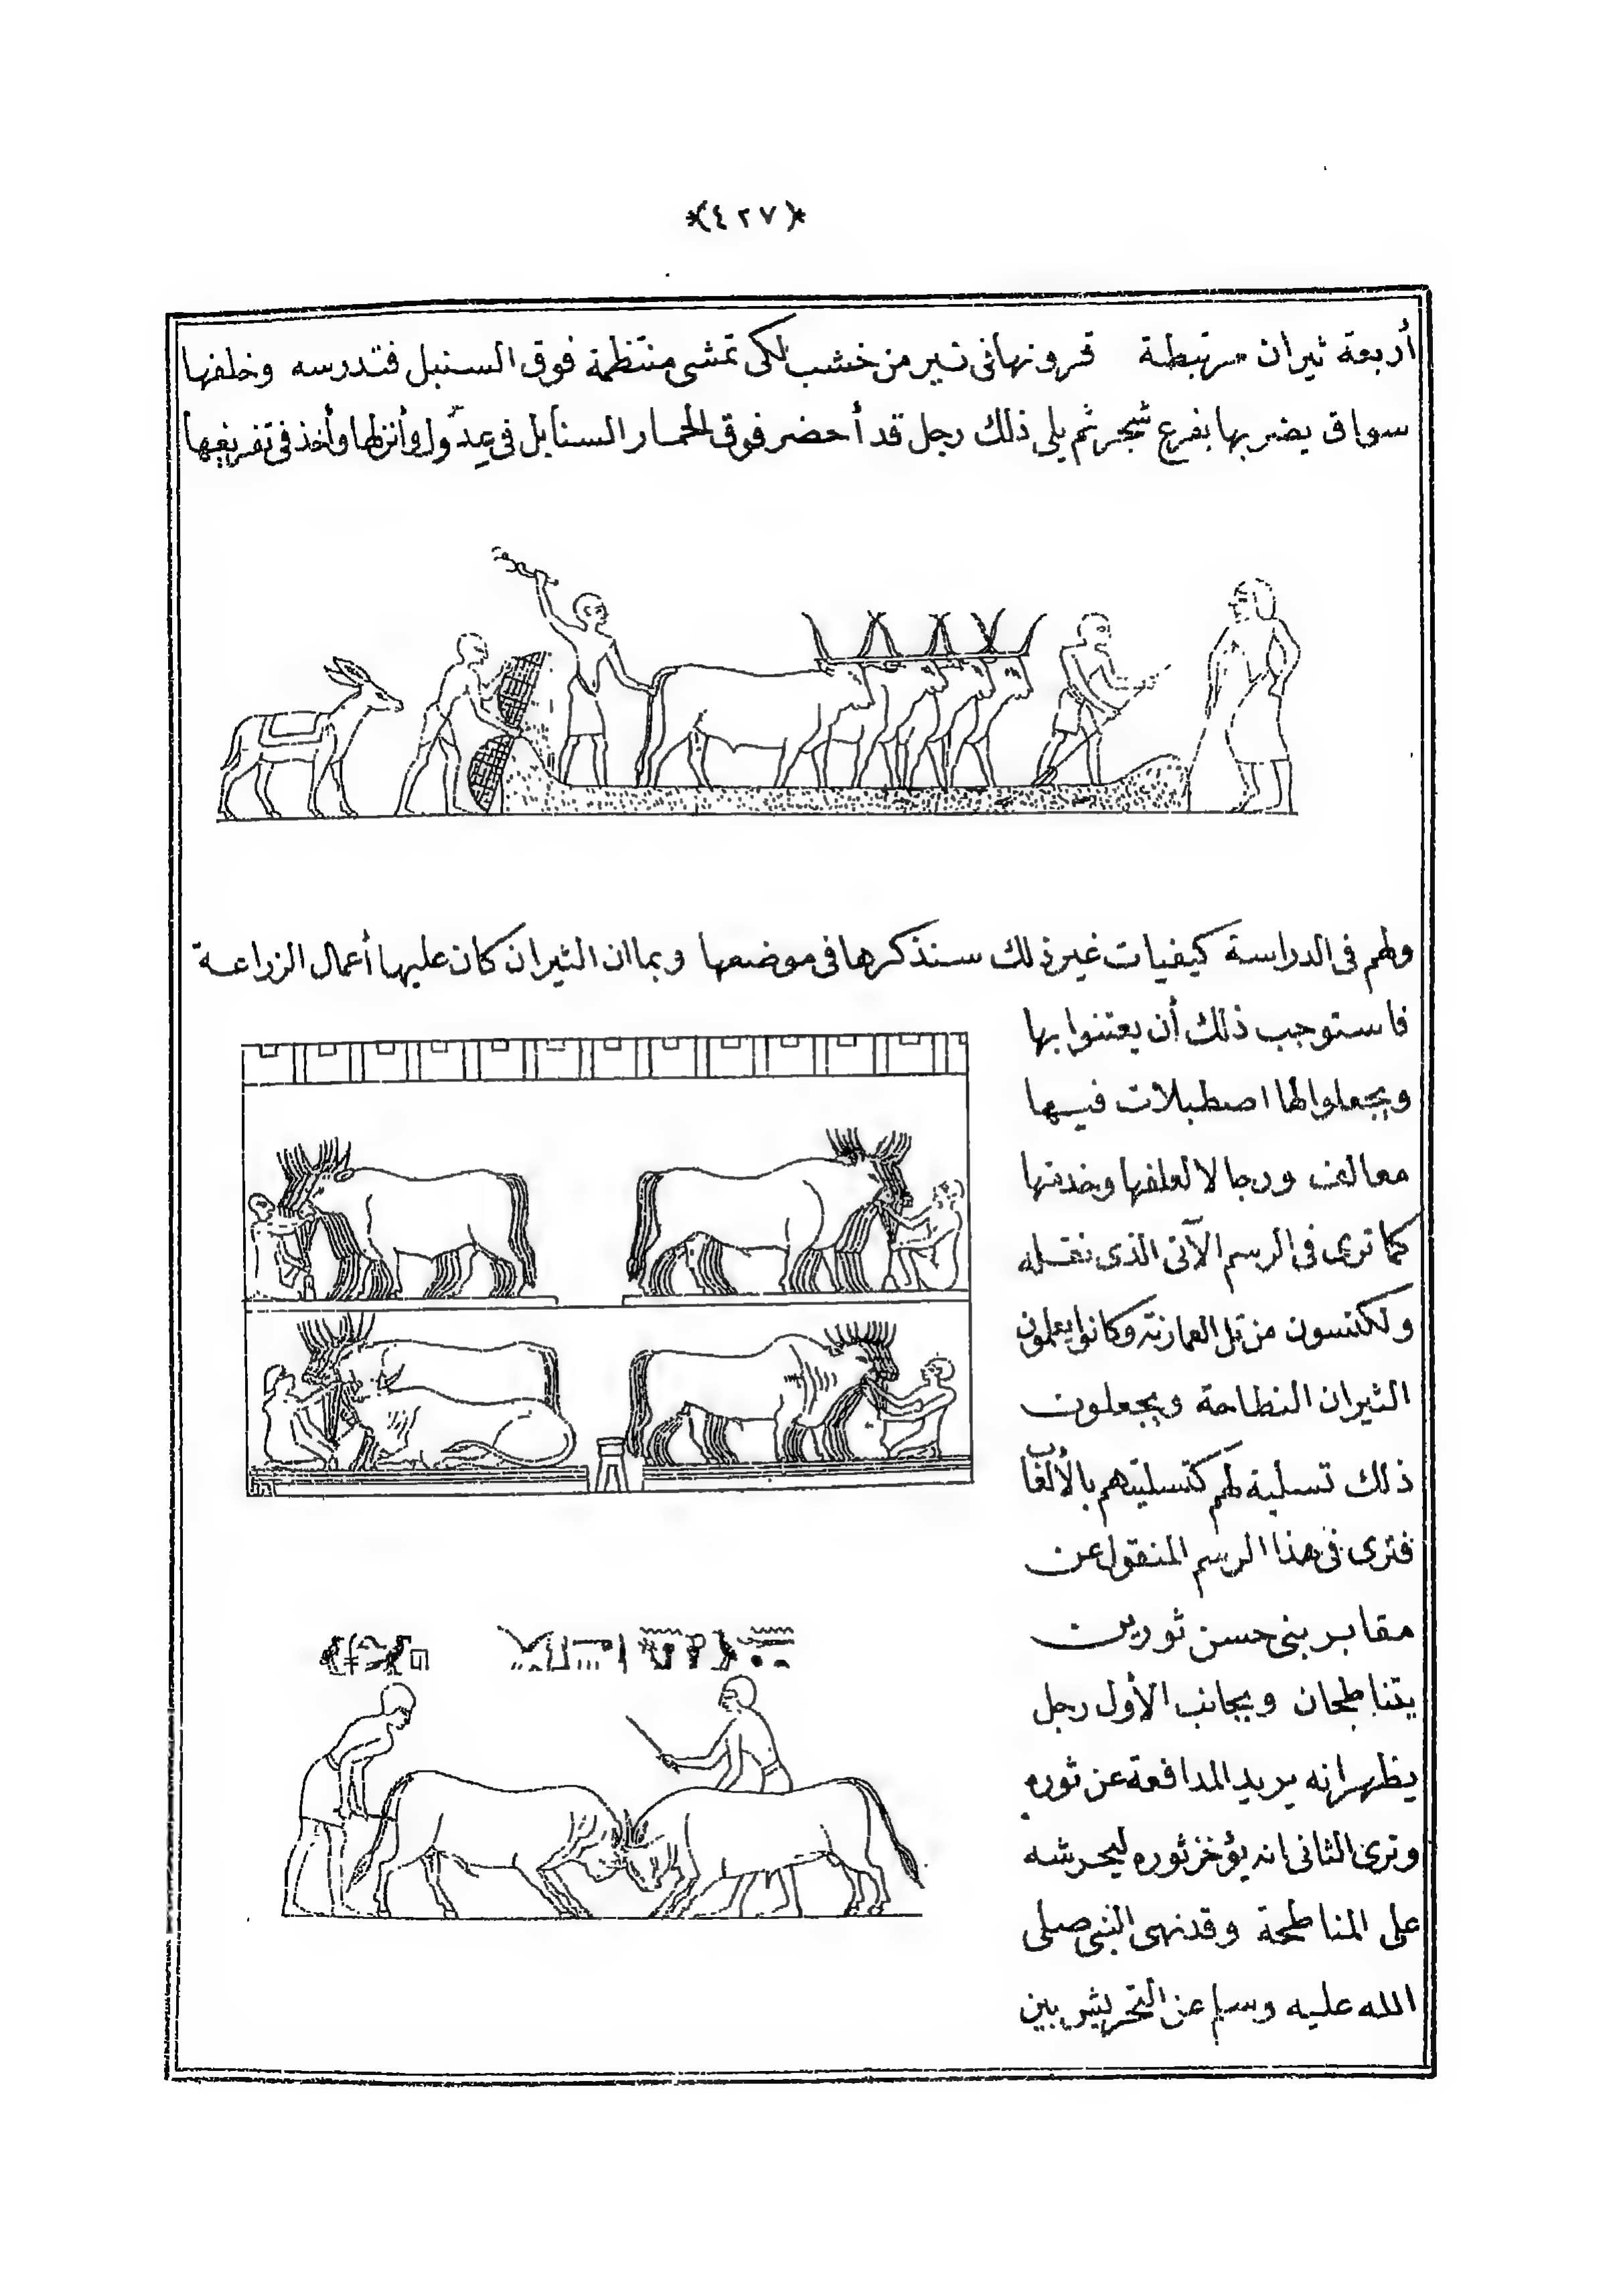 *(٤٢٧)*
أربعة ثيران مرتبطة قرونها فى نير من خشب لكى تمشى منتظمة فوق السنبل فتدرسه وخلفها
سواق يضربها بفرع شجر ثم يلى ذلك رجل قد أحضر فوق الحمار السنابل فى عدول وأنزلها وأخذ فى تفريغها
ولهم فى الدراسة كيفيات غير ذلك سنذكرها فى موضعها وبما ان الثيران كان عليها أعمال الزراعة
فاستوجب ذلك أن يعتنوا بها
ويجعلوا لها اصطبلات فيها
معالف ورجالا لعلفها وخدمتها
كما ترى فى الرسم الآتى الذى نقله
ولكنسون من تل العمارنة وكانوا يعلمون
الثيران النطاحة ويجعلون
ذلك تسلية لهم كتسليتهم بالألعاب
فترى فى هذا الرسم المنقول عن
مقابر بنى حسن ثورين
يتناطحان وبجانب الأول رجل
يظهر انه يريد المدافعة عن ثوره
وترى الثانى انه يؤخر ثوره ليحرشه
على المناطحة وقد نهى النبى صلى
الله عليه وسلم عن التحريش بين